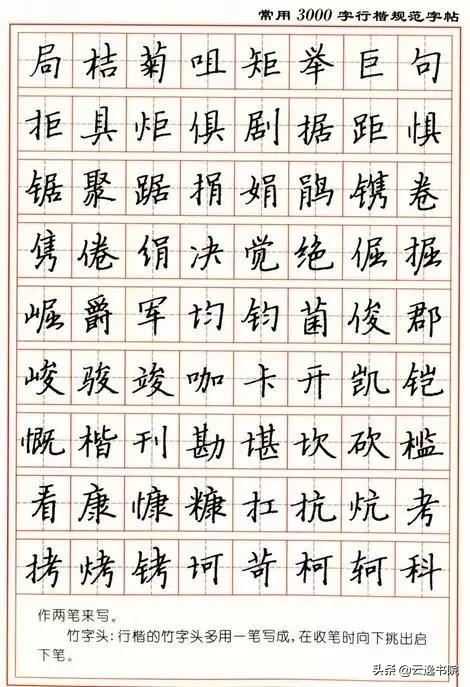 常用3000字行楷规范字帖
局桔菊咀矩举巨句
拒具炬俱剧据距惧
锯聚踞捐娟鹃镌卷
隽倦绢决觉绝倔掘
崛爵军均钧菌俊郡
峻骏竣咖卡开凯铠
慨楷刊勘堪坎砍槛
看康慷糠扛抗炕考
拷烤铐坷苛柯轲科
作两笔来写。
竹字头:行楷的竹字头多用一笔写成,在收笔时向下挑出启
下笔。
头条 @云逸书院